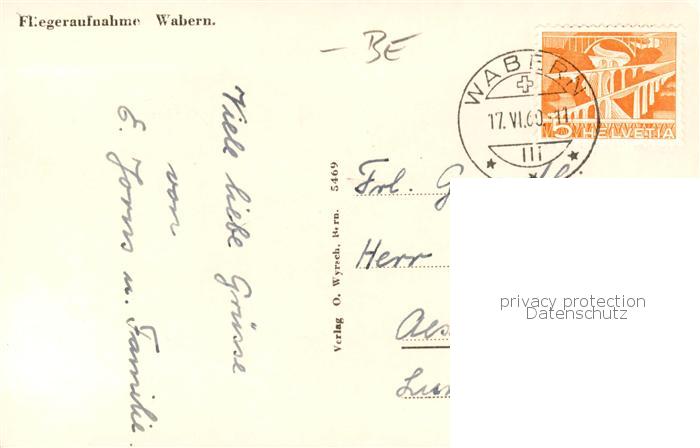 Fliegeraufnahme Wabern.
– BE
WABERN
17.VI.60.-11
III
5 HELVETIA
Viele liebe Grüsse
von
E. Jorns u. Familie.
Verlag O. Wyrsch, Bern. 5469
Frl. G
Herr
Aes
Lu
privacy protection
Datenschutz